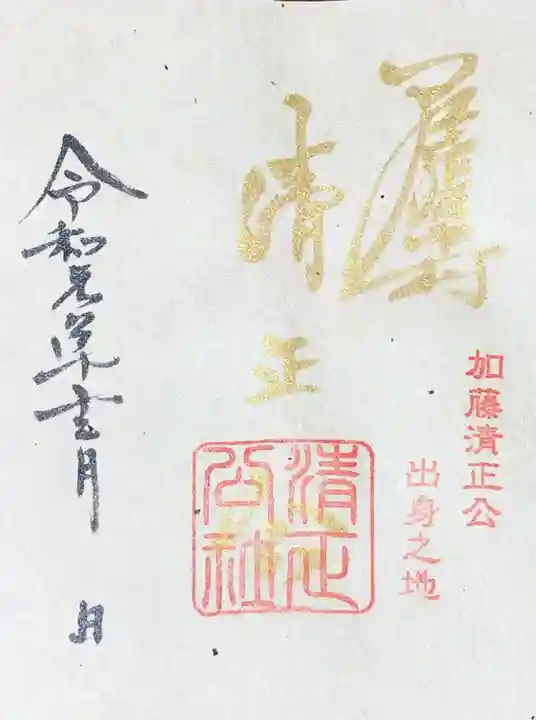 加藤清正公
出身之地
清正
清正
公社
令和元年
月
日